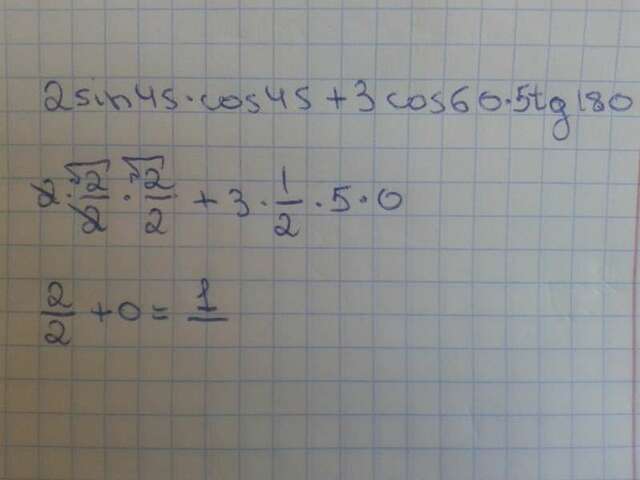 2sin45·cos45+3cos60·5tg180
2·√2/2·√2/2+3·1/2·5·0
2/2+0=1